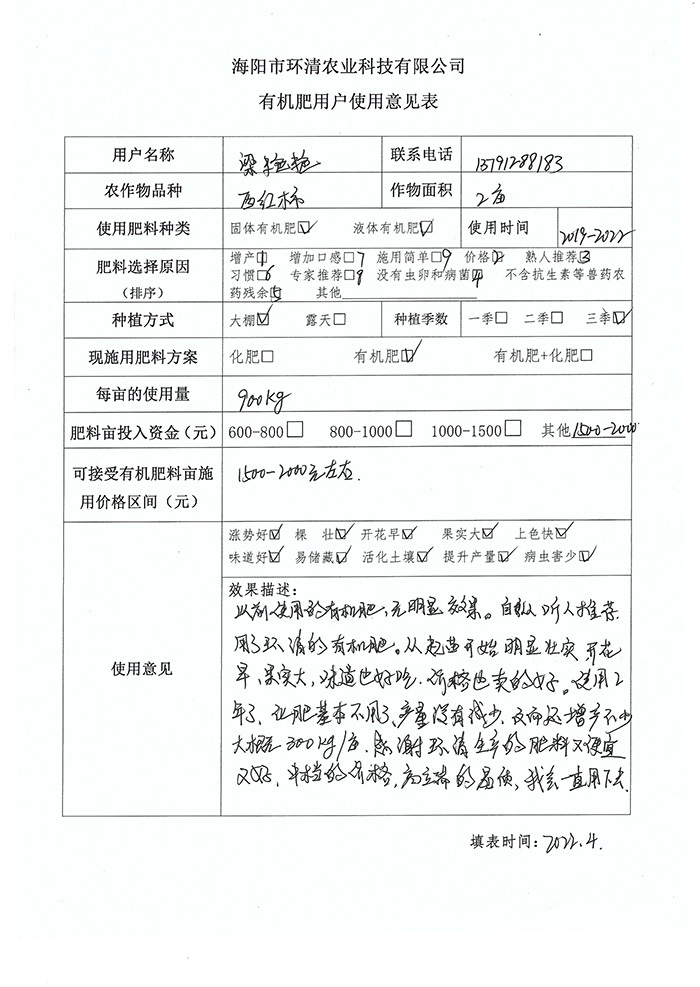 海阳市环清农业科技有限公司
有机肥用户使用意见表
用户名称 梁 艳 联系电话 13791288183
农作物品种 西红柿 作物面积 2亩
使用肥料种类 固体有机肥☑ 液体有机肥☑ 使用时间 2019-2022
肥料选择原因 增产□1 增加口感□7 施用简单□9 价格□2 熟人推荐□3
(排序) 习惯□6 专家推荐□8 没有虫卵和病菌□4 不含抗生素等兽药农
药残余□5 其他
种植方式 大棚☑ 露天□ 种植季数 一季□ 二季□ 三季☑
现施用肥料方案 化肥□ 有机肥☑ 有机肥+化肥□
每亩的使用量 900kg
肥料亩投入资金(元) 600-800□ 800-1000□ 1000-1500□ 其他1500-2000
可接受有机肥料亩施 1500-2000元左右.
用价格区间(元)
涨势好☑ 棵 壮☑ 开花早☑ 果实大☑ 上色快☑
味道好☑ 易储藏☑ 活化土壤☑ 提升产量☑ 病虫害少☑
使用意见
效果描述:
以前使用的有机肥,无明显效果。自从听人推荐
用了环清的有机肥。从起苗开始明显壮实 开花
早,果实大,味道也好吃.价格也卖的好。使用2
年了,化肥基本不用了,产量没有减少,反而还增产不少
大概在300kg/亩.感谢环清生产的肥料又便宜
又好,中档的价格,高端的品质,我会一直用下去.
填表时间:2022.4.